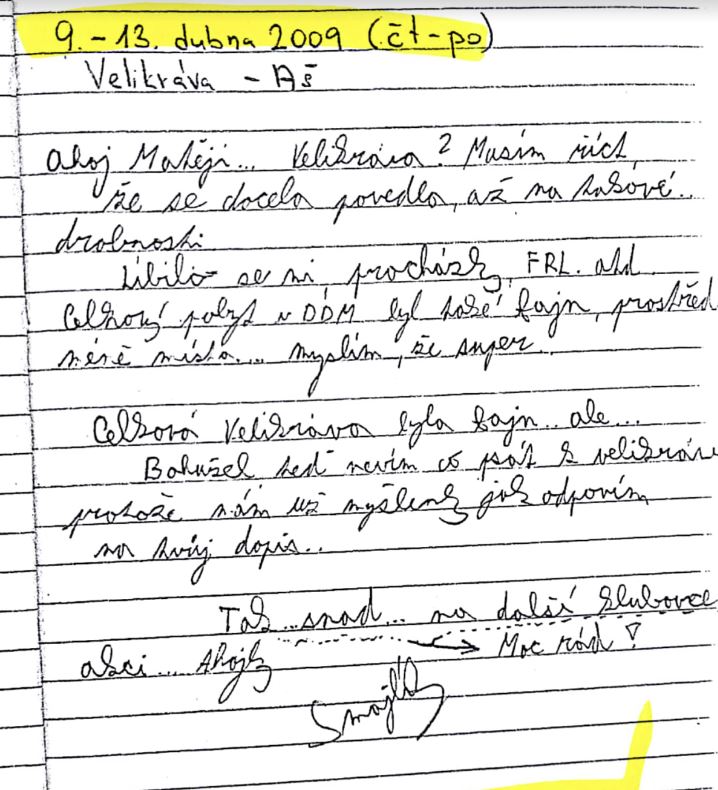 9. - 13. dubna 2009 (čt-po)
Velikráva - Aš
Ahoj Matěji... Velikráva? Musím říct,
že se docela povedla, až na takové..
drobnosti.
Líbilo se mi, procházky, FRL. atd.
Celkový pobyt v DDM byl také fajn, prostřed
méně místa.... myslím, že super..
Celková Velikráva byla fajn... ale...
Bohužel teď nevím co psát k velikráve
protože mám už myšlenky jak odpovím
na tvůj dopis..
Tak...snad... na další klubovce
akci.... Ahojky → Moc rád!
Smajlky